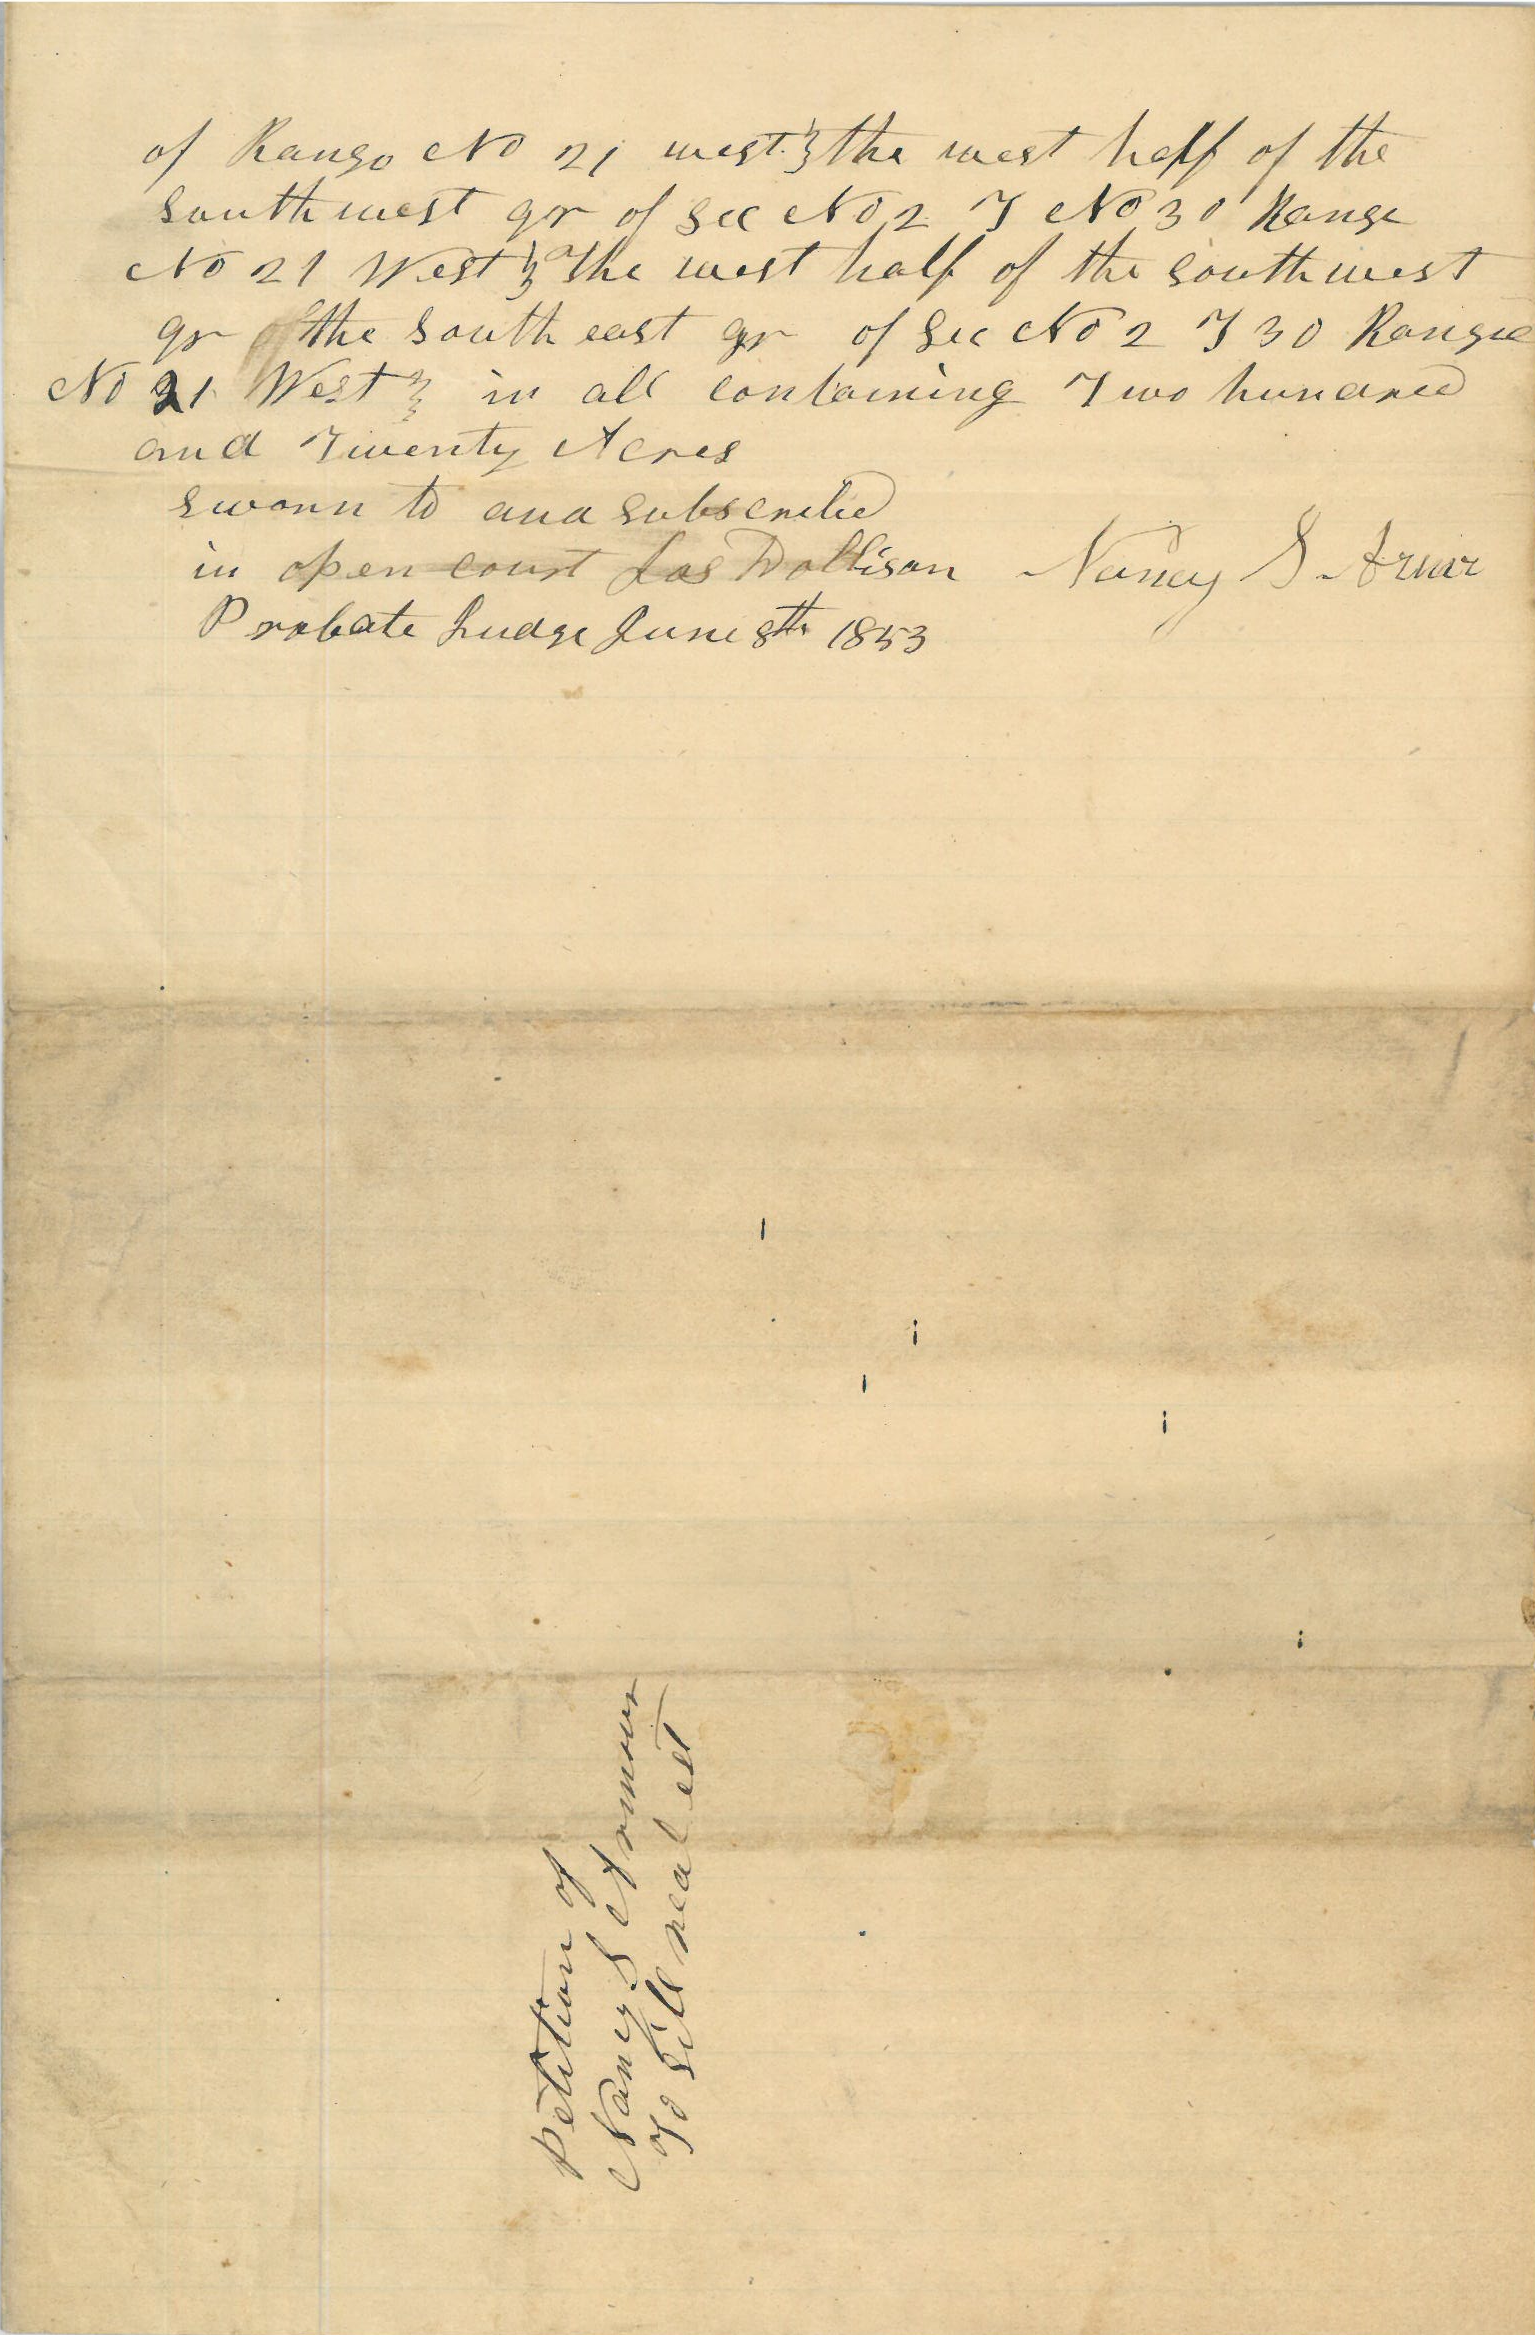 of Range No 21 west & the west half of the
south west qr of Sec No 2 T No 30 Range
No 21 West & The west half of the south west
qr of the south east qr of Sec No 2 T 30 Range
No 21 West & in all containing Two hundred
and Twenty Acres
Sworn to and subscribed
in open court Jos Dollison Nancy S Armr
Probate Judge June 8th 1853
Petition of
Nancy S Armour
To Sell real est